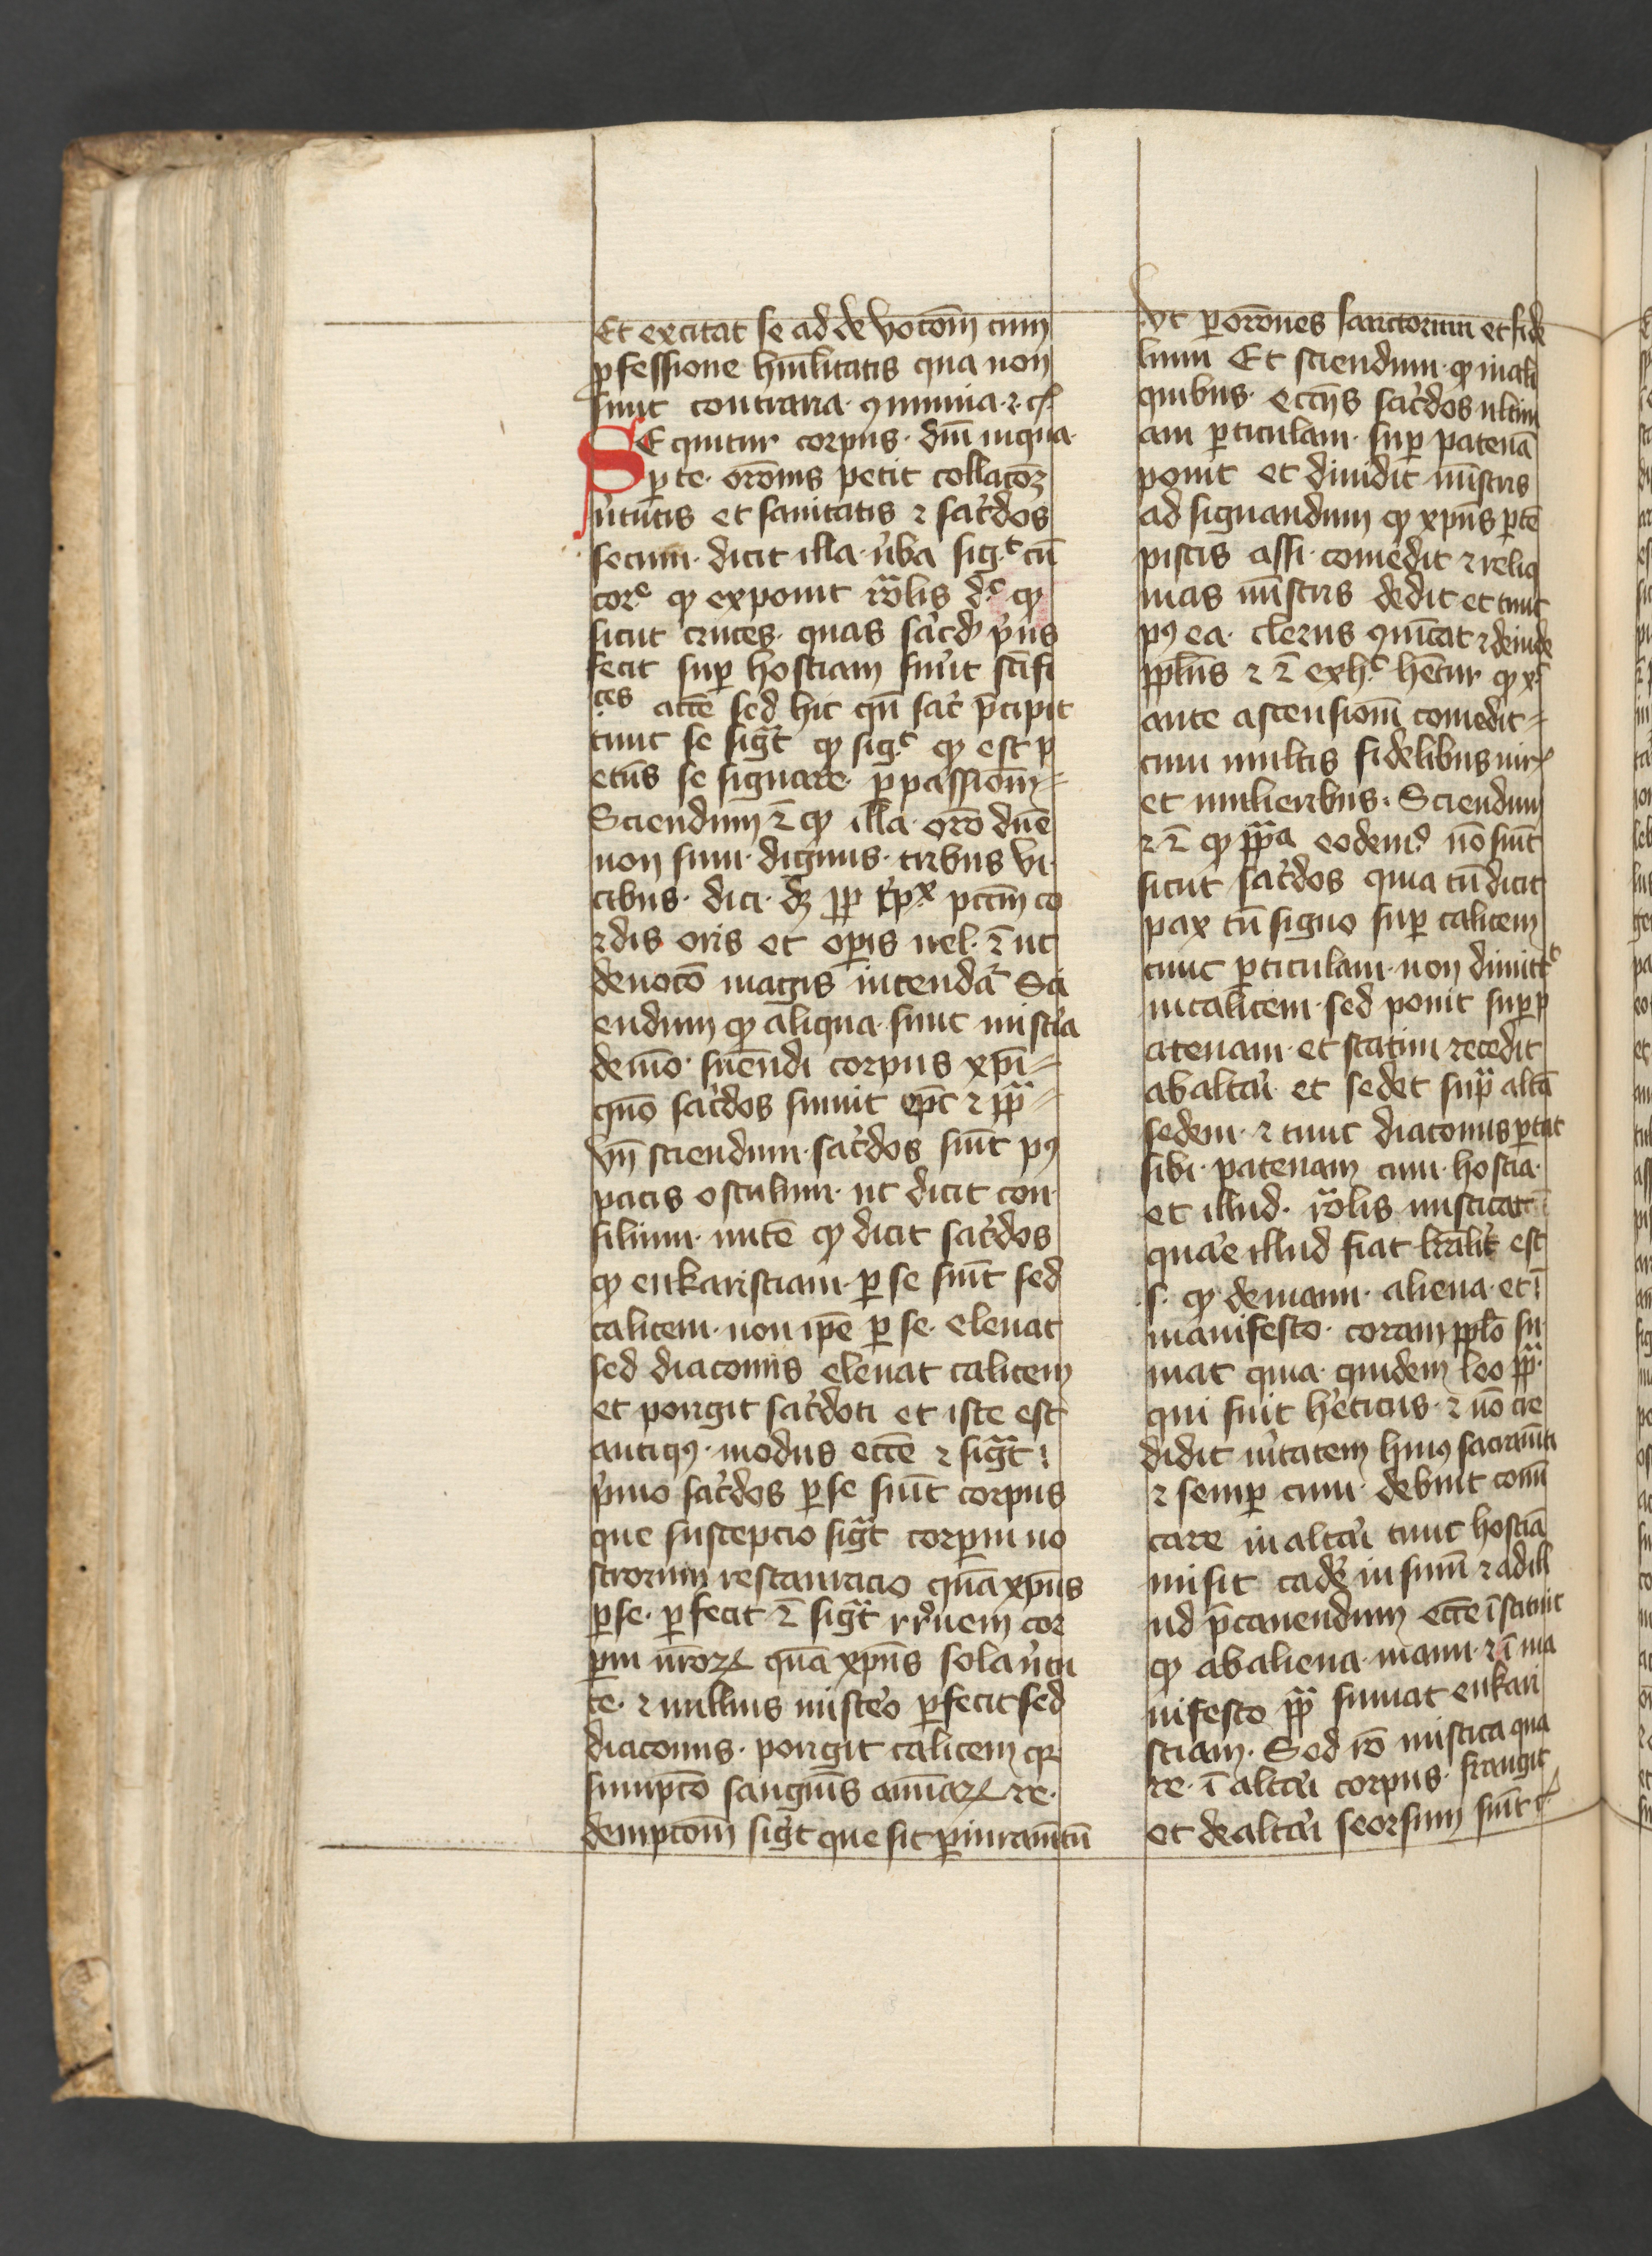 Et excitat se ad de vocōm cum
ꝓfessione hūilitatis qua non
sunt contraria ꝯminia ⁊ cꝭ
SEquitur corpus dnī in qua
ꝑte orōnis petit collacōꝫ
v̓tutis et sanitatis ⁊ sac̓dos
secum dicit illa v̓ba sigᶜ cū
corᵉ ꝙ exponit rōlis dᶜ ꝙ
sicut cruces quas sac̓d p̓us
fecit sup̱ hostiam fuit scīfi
ces accē sed hic qn̄ sac̓ p̄cipit
tunc se sigt ꝙ sigᶜ ꝙ est ꝑ
etus se signare ꝑ passionē
Sciendum ē ꝙ illa orō dnē
non sum dignus tribus vi
cibus dici dꝫ ꝓpꝑ pccm̄ co
rdis oris et oꝑis uel ē ut
deuotō magis intendat̓ Sci
endum ꝙ aliqua sunt mist̓ia
de mō sumēdi corpus xpī
quō sac̓dos sumit epc̄ ⁊ pp̄
vn̄ sciendum sac̓dos suīt pꝰ
pacis osculum ut dicit con
silium nutē ꝙ dicit sac̓dos
ꝙ eukaristiam ꝑ se suīt sed
calicem non ipē ꝑ se eleuat
sed diaconus eleuat calicem
et porrigit sac̓doti et iste est
antiqꝰ modus eccē ⁊ sigt
p̓mo sac̓dos ꝑ se suīt corpus
que suscepcio sigt corꝑum no
strorum restauracio quā xpūs
ꝑ se ꝑfecit ē sigt rr̓uem cor
ꝑum nrōꝝ quā xpūs sola v̓tu
te ⁊ nullius mistēo ꝑfecit sed
diaconus porrigit calicem qꝛ
sumptō sanguīs aīaꝝ re
demptōm sigt que sit ꝑ iuramītū
vt ꝑ orōnes sanctorum et fide
lium Et sciendum ꝙ in ali
quibus eccīis sac̓dos ultim
am ꝑticulam sup̱ patenā
ponit et diuidit mīstris
ad signandum ꝙ xpūs ꝑtē
piscis assi comedit ⁊ reliq
uias mīstris dedit et tunc
pꝰ ea clerus ꝯmīcat ⁊ deinde
ppl̄us ⁊ ē ex hᶜ hētur ꝙ xᶜ
ante ascensionē comedit
cum multis fidelibus uirꝭ
et mulieribus Sciendum
⁊ ē ꝙ ppa eodem nō suīt
sicut sac̓dos quia cū dicit
pax cū signo sup̱ calicem
tunc ꝑticulam non dimittᶜ
in calicem sed ponit sup̱ p
atenam et statim recedit
ab altari et sedet sup̱ altā
sedem ⁊ tunc diaconus portat
sibi patenam cum hostia
et illud rōlis misticat
quare illud fiat lrālit̓ est
.s. ꝙ de manu aliena et ī
manifesto coram pplō su
mat quia quidem leo pp̄
qui fuit hēticus ⁊ nō cre
didit v̓itatem huiꝰ sacramīti
⁊ semꝑ cum debuit comī
care in altari tunc hostiā
misit cadē in sinū ⁊ ad ill
ud p̄cauendum eccē īstituit
ꝙ ab aliena manu ⁊ ī ma
nifesto pp̄ sumat eukari
stiam Sed rō mistica qua
re ī altari corpus frangit
et de altari seorsum suīt